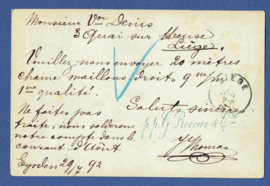 Monsieur Vor Denis
3 Quai sur Meuse
Liège
Veuillez nous envoyer 20 mètres
chaine maillons droits 9 m/m
1ère qualité.
Salut sincère
Ne faites pas
traite, nous solderons
notre compte dans le
courant d'Août
p.p. G
Eysden 29/7 92
LIÉGE